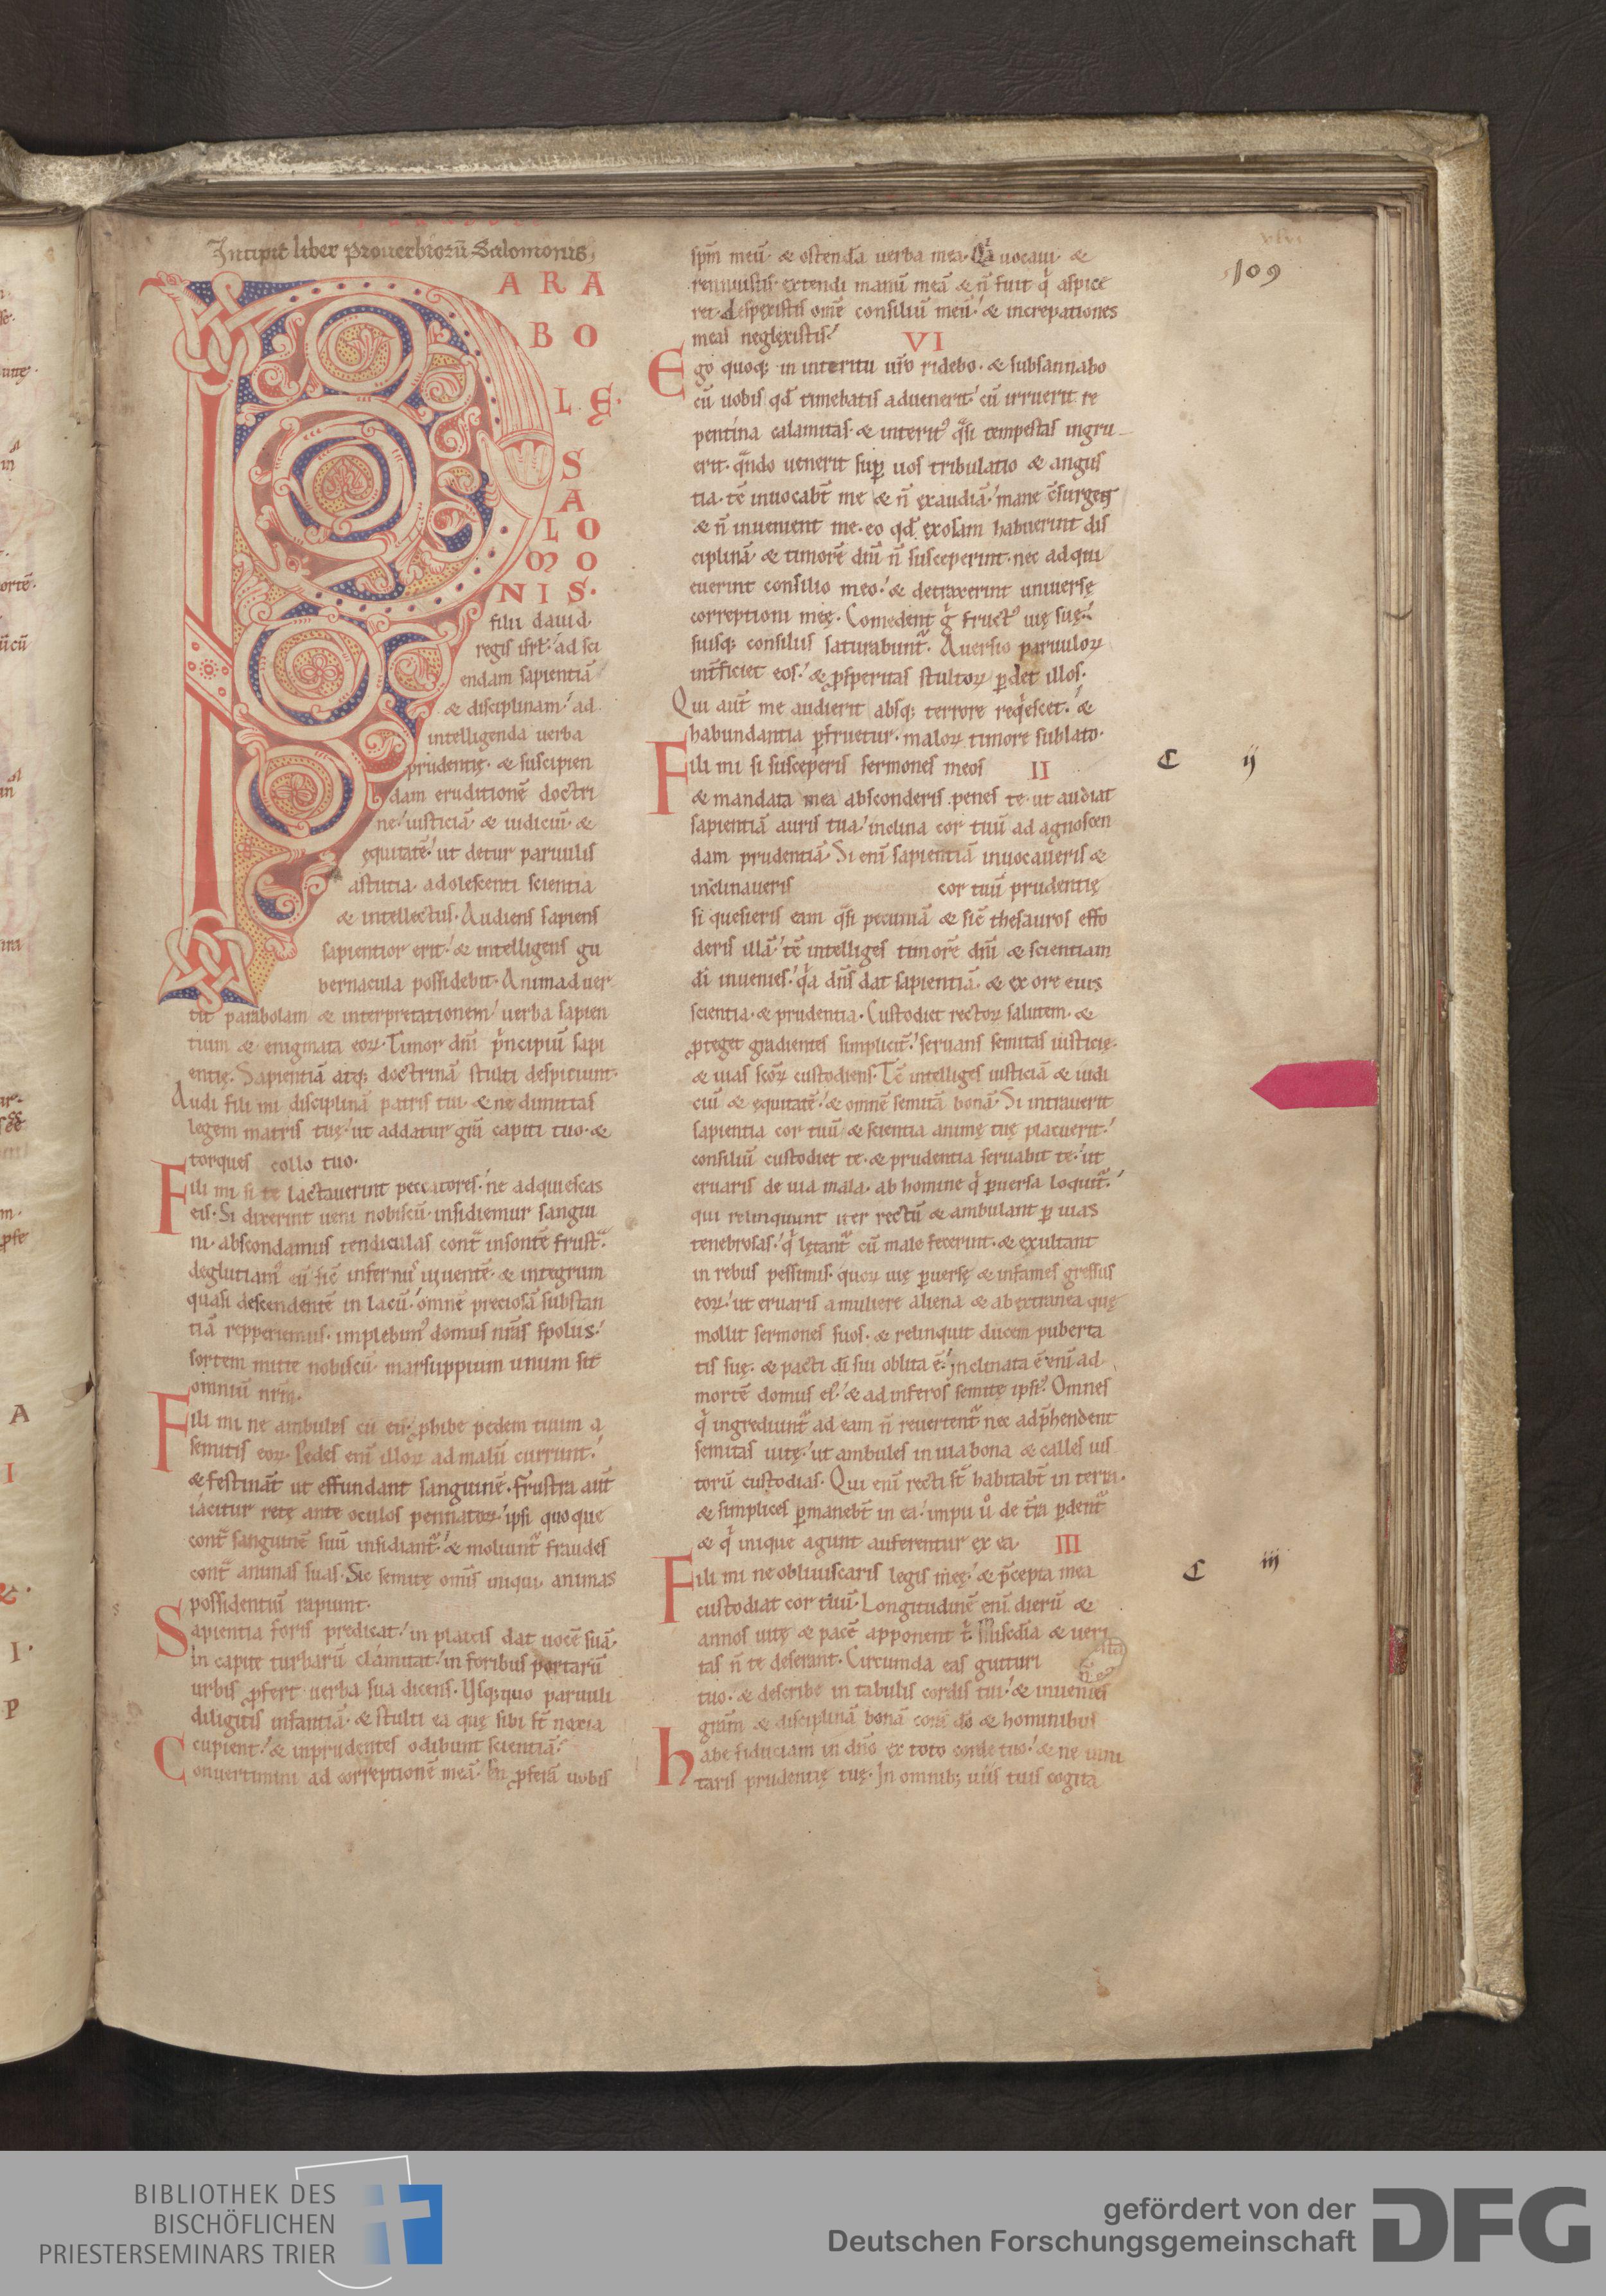 Incipit liber Prouerbiorũ Salomonis
109
ARA
BO
LĘ·
S
A
LO
MO
NIS·
filii dauid
regis isrl̃· ad sci
endam sapientiã
& disciplinam· ad
intelligenda uerba
prudentię· & suscipien
dam eruditionẽ doctri
nę· iusticiã· & iudiciũ· &
ęquitatẽ· ut detur paruulis
astutia· adolescenti scientia
& intellectus· Audiens sapiens
sapientior erit· & intelligens gu
bernacula possidebit· Animaduer
tit parabolam & interpretationem· uerba sapien
tium & enigmata eoꝝ· Timor dñi p̃ncipiũ sapi
entię· Sapientiã atq; doctrinã stulti despiciunt·
Audi fili mi disciplinã patris tui· & ne dimittas
legem matris tuę· ut addatur gr̃a capiti tuo· &
torques collo tuo·
Fili mi si te lactauerint peccatores· ne adquiescas
eis· Si dixerint ueni nobiscũ· insidiemur sangui
ni· abscondamus tendiculas cont̃ insontẽ frust̃·
deglutiam' eũ sic̃ infernus uiuentẽ· & integrum
quasi descendentẽ in lacũ· omnẽ preciosã substan
tiã repperiemus· implebim' domus nr̃as spoliis·
sortem mitte nobiscũ· marsuppium unum sit
omniũ nrm̃·
Fili mi ne ambules cũ eis· ꝓhibe pedem tuum a
semitis eoꝝ· Pedes eni᷑ illoꝝ ad malũ currunt·
& festinãt ut effundant sanguinẽ· Frustra aut̃
iacitur rete ante oculos pennatoꝝ· ipsi quoque
cont̃ sanguinẽ suũ insidiant̃· & moliunt̃ fraudes
cont̃ animas suas· Sic semitę om̃s iniqui animas
possidentiũ rapiunt·
Sapientia foris predicat· in plateis dat uocẽ suã·
In capite turbarũ clamitat· in foribus portarũ
urbis ꝓfert uerba sua dicens· Usq;quo paruuli
diligitis infantiã· & stulti ea quę sibi st̃ noxia
cupient· & inprudentes odibunt scientiã·
Conuertimini ad correptionẽ meã· En ꝓferã uobis
spm̃ meũ· & ostendã uerba mea· Q̃a uocaui &
rennuistis· extendi manũ meã & ñ fuit q̃ aspice
ret· despexistis omẽ consiliũ meũ· & increpationes
meas neglexistis·
VI
Ego quoq; in interitu ur̃o ridebo· & subsannabo
cũ uobis qd̃ timebatis aduenerit· cũ irruerit re
pentina calamitas· & interit' q̃si tempestas ingru
erit· q̃ndo uenerit sup̱ uos tribulatio & angus
tia· tc̃ inuocabt̃ me & ñ exaudiã· mane c̃surgent
& ñ inuenient me· eo qd̃ exosam habuerint dis
ciplinã· & timorẽ dñi ñ susceperint· nec adqui
euerint consilio meo· & detraxerint uniuersę
correptioni meę· Comedent g̃ fruct' uię suę·
suisq; consiliis saturabunt̃· Auersio paruuloꝝ
int̃ficiet eos· & ꝓsperitas stultoꝝ p̱det illos·
Qui aut̃ me audierit absq; terrore req̃escet· &
habundantia p̱fruetur· maloꝝ timore sublato·
Fili mi si susceperis sermones meos II
C ij
& mandata mea absconderis penes te· ut audiat
sapientiã auris tua· inclina cor tuũ ad agnoscen
dam prudentiã· Si eni᷑ sapientiã inuocaueris &
inclinaueris cor tuũ prudentię
si quesieris eam q̃si pecuniã & sic̃ thesauros effo
deris illã· tc̃ intelliges timorẽ dñi & scientiam
di᷑ inuenies· q̃a dñs dat sapientiã· & ex ore eius
scientia· & prudentia· Custodiet rectoꝝ salutem· &
ꝓteget gradientes simplicit̃· seruans semitas iusticię·
& uias sc̃oꝝ custodiens· Tc̃ intelliges iusticiã & iudi
ciũ· & ęquitatẽ· & omnẽ semitã bonã· Si intrauerit
sapientia cor tuũ· & scientia animę tuę placuerit·
consiliũ custodiet te· & prudentia seruabit te· ut
eruaris de uia mala· ab homine q̃ p̱uersa loquit̃·
qui relinquunt iter rectũ & ambulant p̱ uias
tenebrosas· q̃ lętant̃ cũ male fecerint· & exultant
in rebus pessimis· quoꝝ uię p̱uersę & infames gressus
eoꝝ· ut eruaris a muliere aliena & ab extranea quę
mollit sermones suos· & relinquit ducem puberta
tis suę· & pacti di᷑ sui oblita ẽ· Inclinata ẽ eni᷑ ad
mortẽ domus ei'· & ad inferos semitę ipsi'· Omnes
q̃ ingrediunt̃ ad eam ñ reuertent̃ nec adp̃hendent
semitas uitę· ut ambules in uia bona & calles ius
torũ custodias· Qui eni᷑ recti st̃ habitabt̃ in terra·
& simplices p̱manebt̃ in ea· impii u᷑o de t̃ra p̱dent̃
& q̃ inique agunt auferentur ex ea III
C iij
Fili mi ne obliuiscaris legis meę· & p̃cepta mea
custodiat cor tuũ· Longitudinẽ eni᷑ dierũ &
annos uitę & pacẽ apponent t᷑· Misc̃dia & ueri
tas ñ te deserant· Circumda eas gutturi
tuo· & describe in tabulis cordis tui· & inuenies
gr̃am & disciplinã bonã corã dõ & hominibus
habe fiduciam in dño ex toto corde tuo· & ne inni
taris prudentię tuę· In omnib; uiis tuis cogita
BIBLIOTHEK DES
BISCHÖFLICHEN
PRIESTERSEMINARS TRIER
gefördert von der
Deutschen Forschungsgemeinschaft
DFG